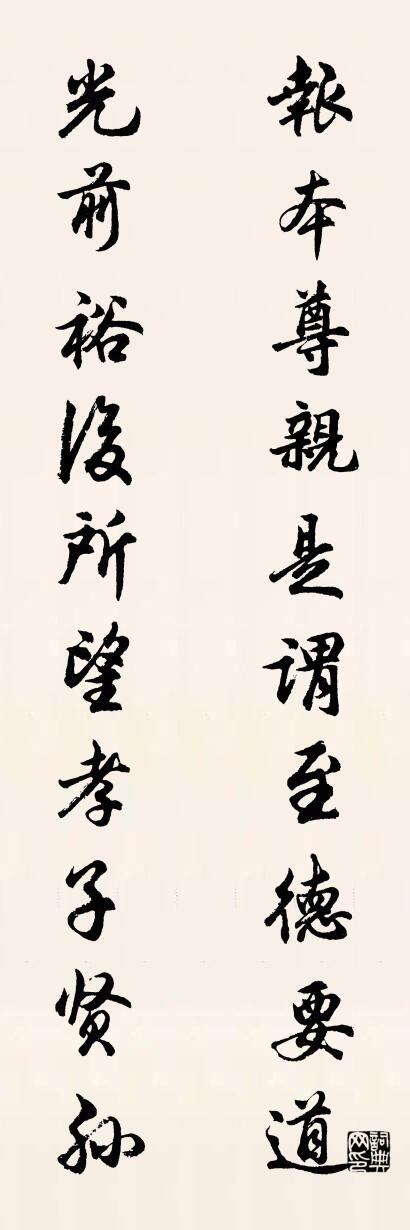 報本尊親是謂至德要道
光前裕後所望孝子贤孙
詞典網印